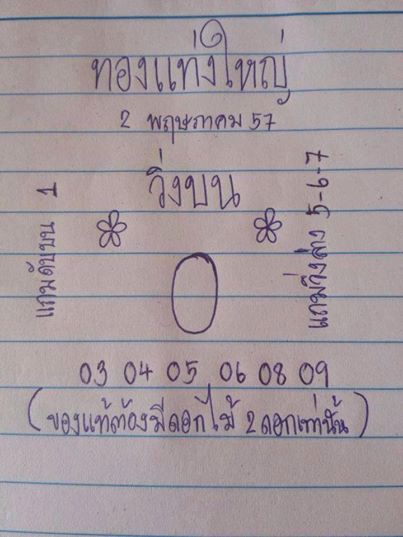 ทองแท่งใหญ่
2 พฤษภาคม 57
วิ่งบน
แถมดับบน 1
แถมวิ่งล่าง 5-6-7
0
03 04 05 06 08 09
(ของแท้ต้องมีดอกไม้ 2 ดอกเท่านั้น)